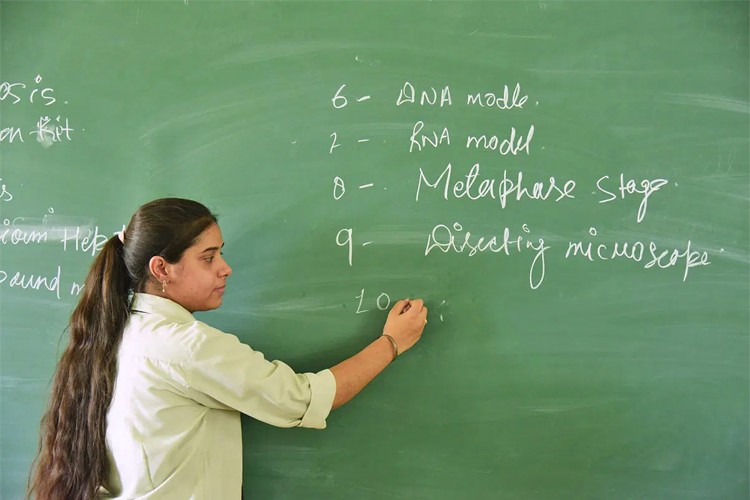 osis.
on Kit
is
ioum Hep
ound m
6 - DNA modle.
7 - RNA model.
8 - Metaphase stage.
9 - Disecting microscope.
10